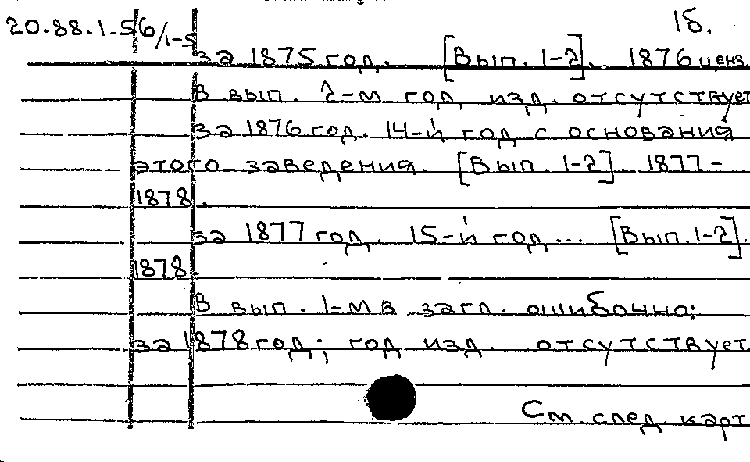 20.88.1-5 6/1-5 1б.
за 1875 год. [Вып. 1-2]. 1876 ценз.
В вып. 2-м год изд. отсутствует
за 1876 год. 14-й год с основания
этого заведения. [Вып. 1-2] 1877-
1878.
за 1877 год. 15-й год... [Вып. 1-2].
1878.
В вып. 1-м в загл. ошибочно:
за 1878 год; год изд. отсутствует
См. след. карт